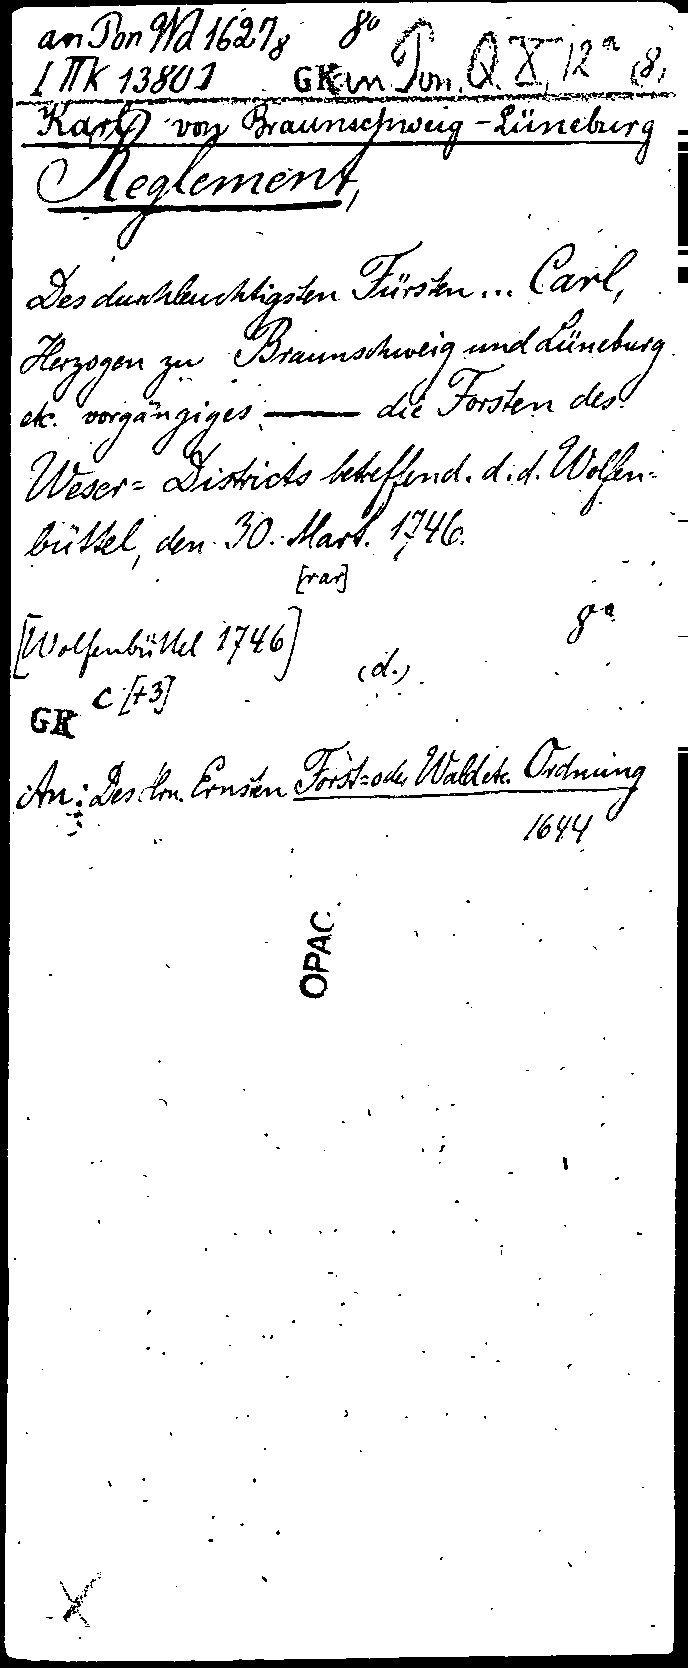 an Pon Wd 1627, 8°
[ΠK 1380] GK an Pon. Q. X, 12ª (8)
Karl von Braunschweig-Lüneburg
Reglement,
Des durchleuchtigsten Fürsten... Carl,
Herzogen zu Braunschweig und Lüneburg
etc. vorgängiges —— die Forsten des
Weser= Districts betreffend. d. d. Wolfen=
büttel, den 30. Mart. 1746.
[rar]
8°
[Wolfenbüttel 1746]
(d.)
C [+3]
GK
An: Des Hrn. Ernsten Forst=oder Wald etc. Ordnung
1644
OPAC